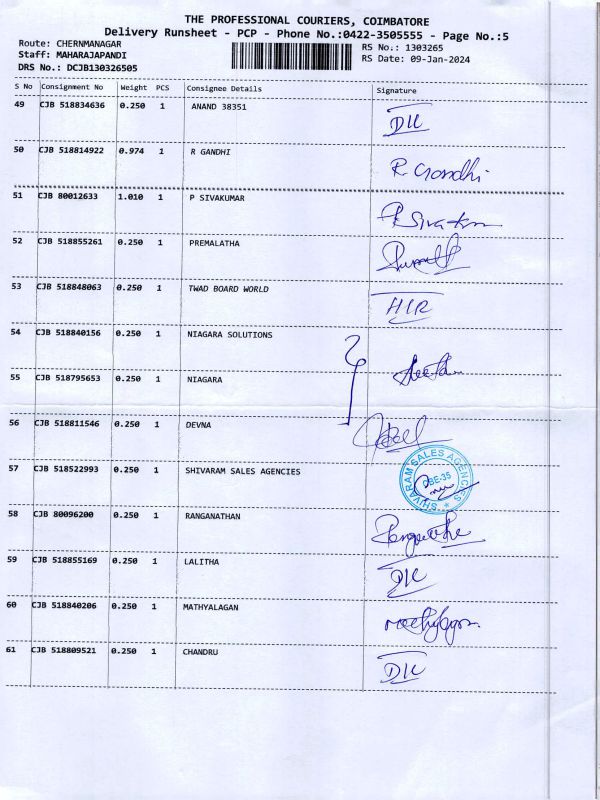 THE PROFESSIONAL COURIERS, COIMBATORE
Delivery Runsheet - PCP - Phone No.:0422-3505555 - Page No.:5
Route: CHERNMANAGAR
RS No.: 1303265
Staff: MAHARAJAPANDI
RS Date: 09-Jan-2024
DRS No.: DCJB130326505
S No Consignment No Weight PCS Consignee Details Signature
49 CJB 518834636 0.250 1 ANAND 38351
50 CJB 518814922 0.974 1 R GANDHI R Gandhi
51 CJB 80012633 1.010 1 P SIVAKUMAR
52 CJB 518855261 0.250 1 PREMALATHA
53 CJB 518848063 0.250 1 TWAD BOARD WORLD
54 CJB 518840156 0.250 1 NIAGARA SOLUTIONS
55 CJB 518795653 0.250 1 NIAGARA
56 CJB 518811546 0.250 1 DEVNA
57 CJB 518522993 0.250 1 SHIVARAM SALES AGENCIES SHIVARAM SALES AGENCIES
58 CJB 80096200 0.250 1 RANGANATHAN
59 CJB 518855169 0.250 1 LALITHA
60 CJB 518840206 0.250 1 MATHYALAGAN
61 CJB 518809521 0.250 1 CHANDRU